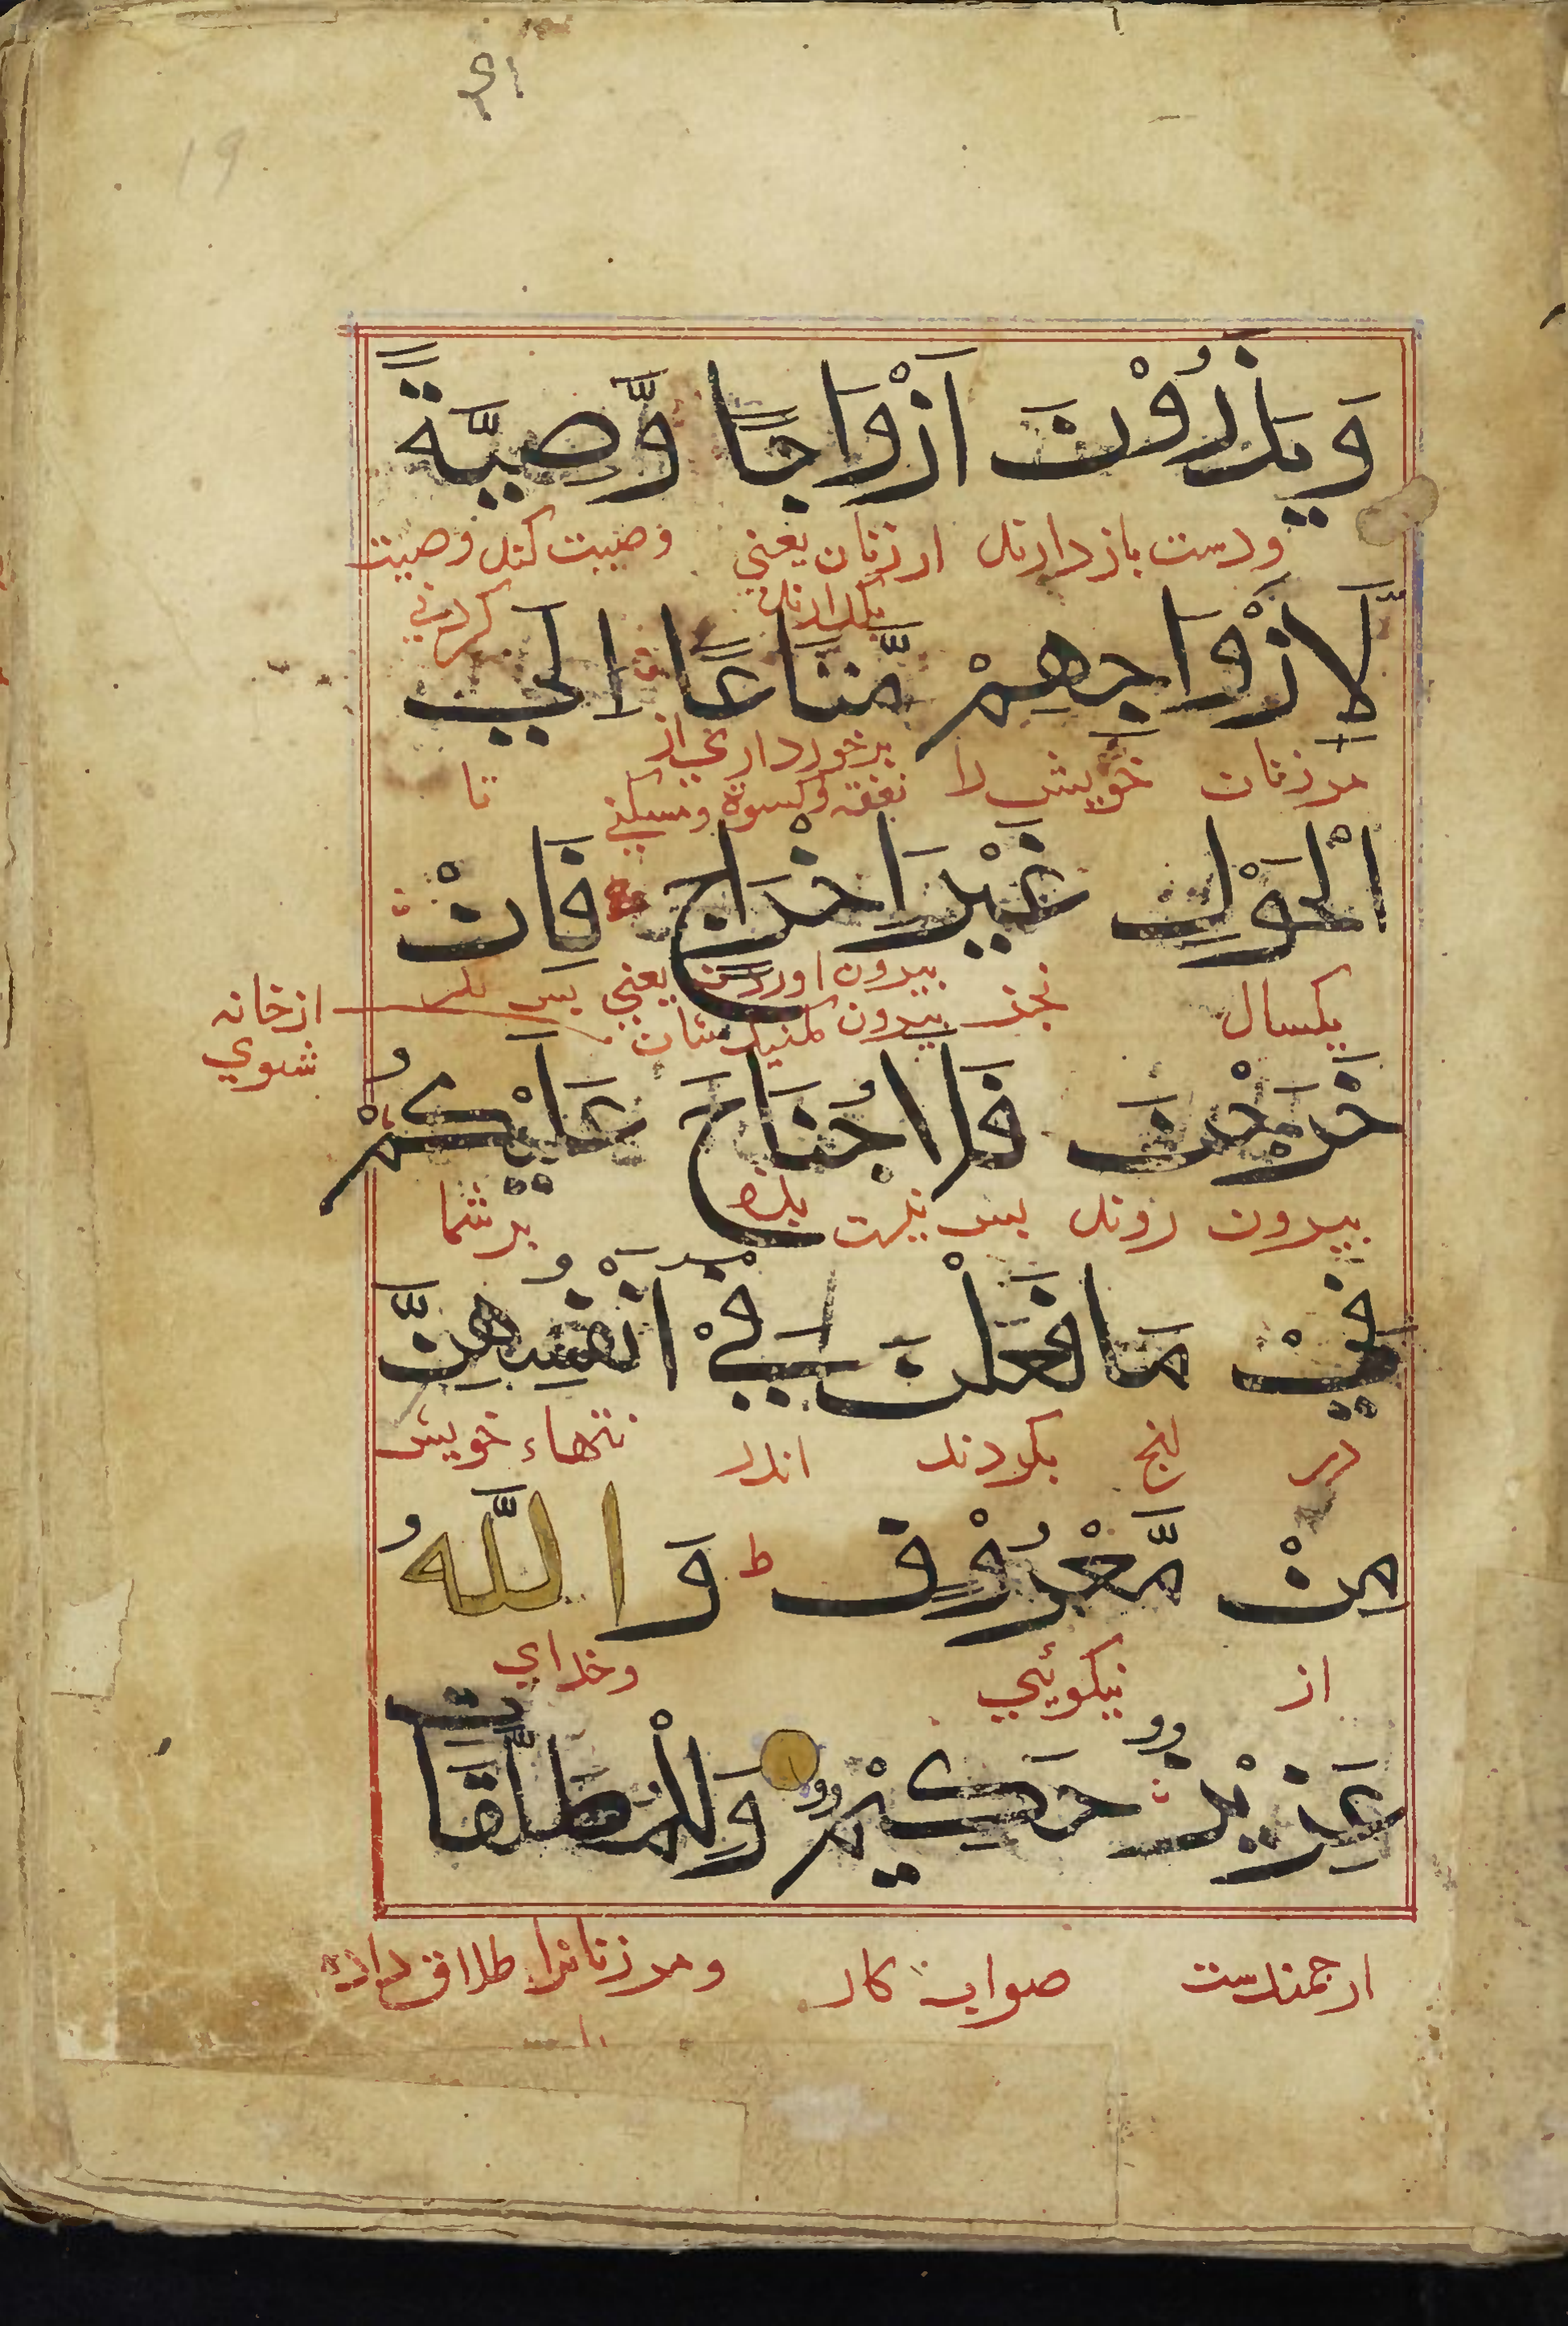 وَيَذَرُوْنَ اَزْوَاجًا وَّصِيَّةً
ودست بازدارند ارزنان یعنی وصیت کنند وصیت
بگذارند کردنی
لِّاَزْوَاجِهِمْ مَّتَاعًا اِلَي
مرزنان خویش را برخورداری از تا
نفقه وکسوة ومسکنی
الْحَوْلِ غَيْرَ اِخْرَاجٍ فَاِنْ
یکسال بجز بیرون اوردن یعنی پس
بیرون مکنید شان
ازخانه
شوي
خَرَجْنَ فَلَا جُنَاحَ عَلَيْكُمْ
بیرون روند پس نیست بزه برشما
فِيْ مَا فَعَلْنَ فِيْ اَنْفُسِهِنَّ
در انچ بکردند اندر تنهاء خویش
مِنْ مَّعْرُوْفٍ ط وَاللّٰهُ
از نیکوئي وخداي
عَزِيْزٌ حَكِيْمٌ وَلِلْمُطَلَّقَاتِ
ارجمندست صواب کار ومرزنانرا طلاق داده
19